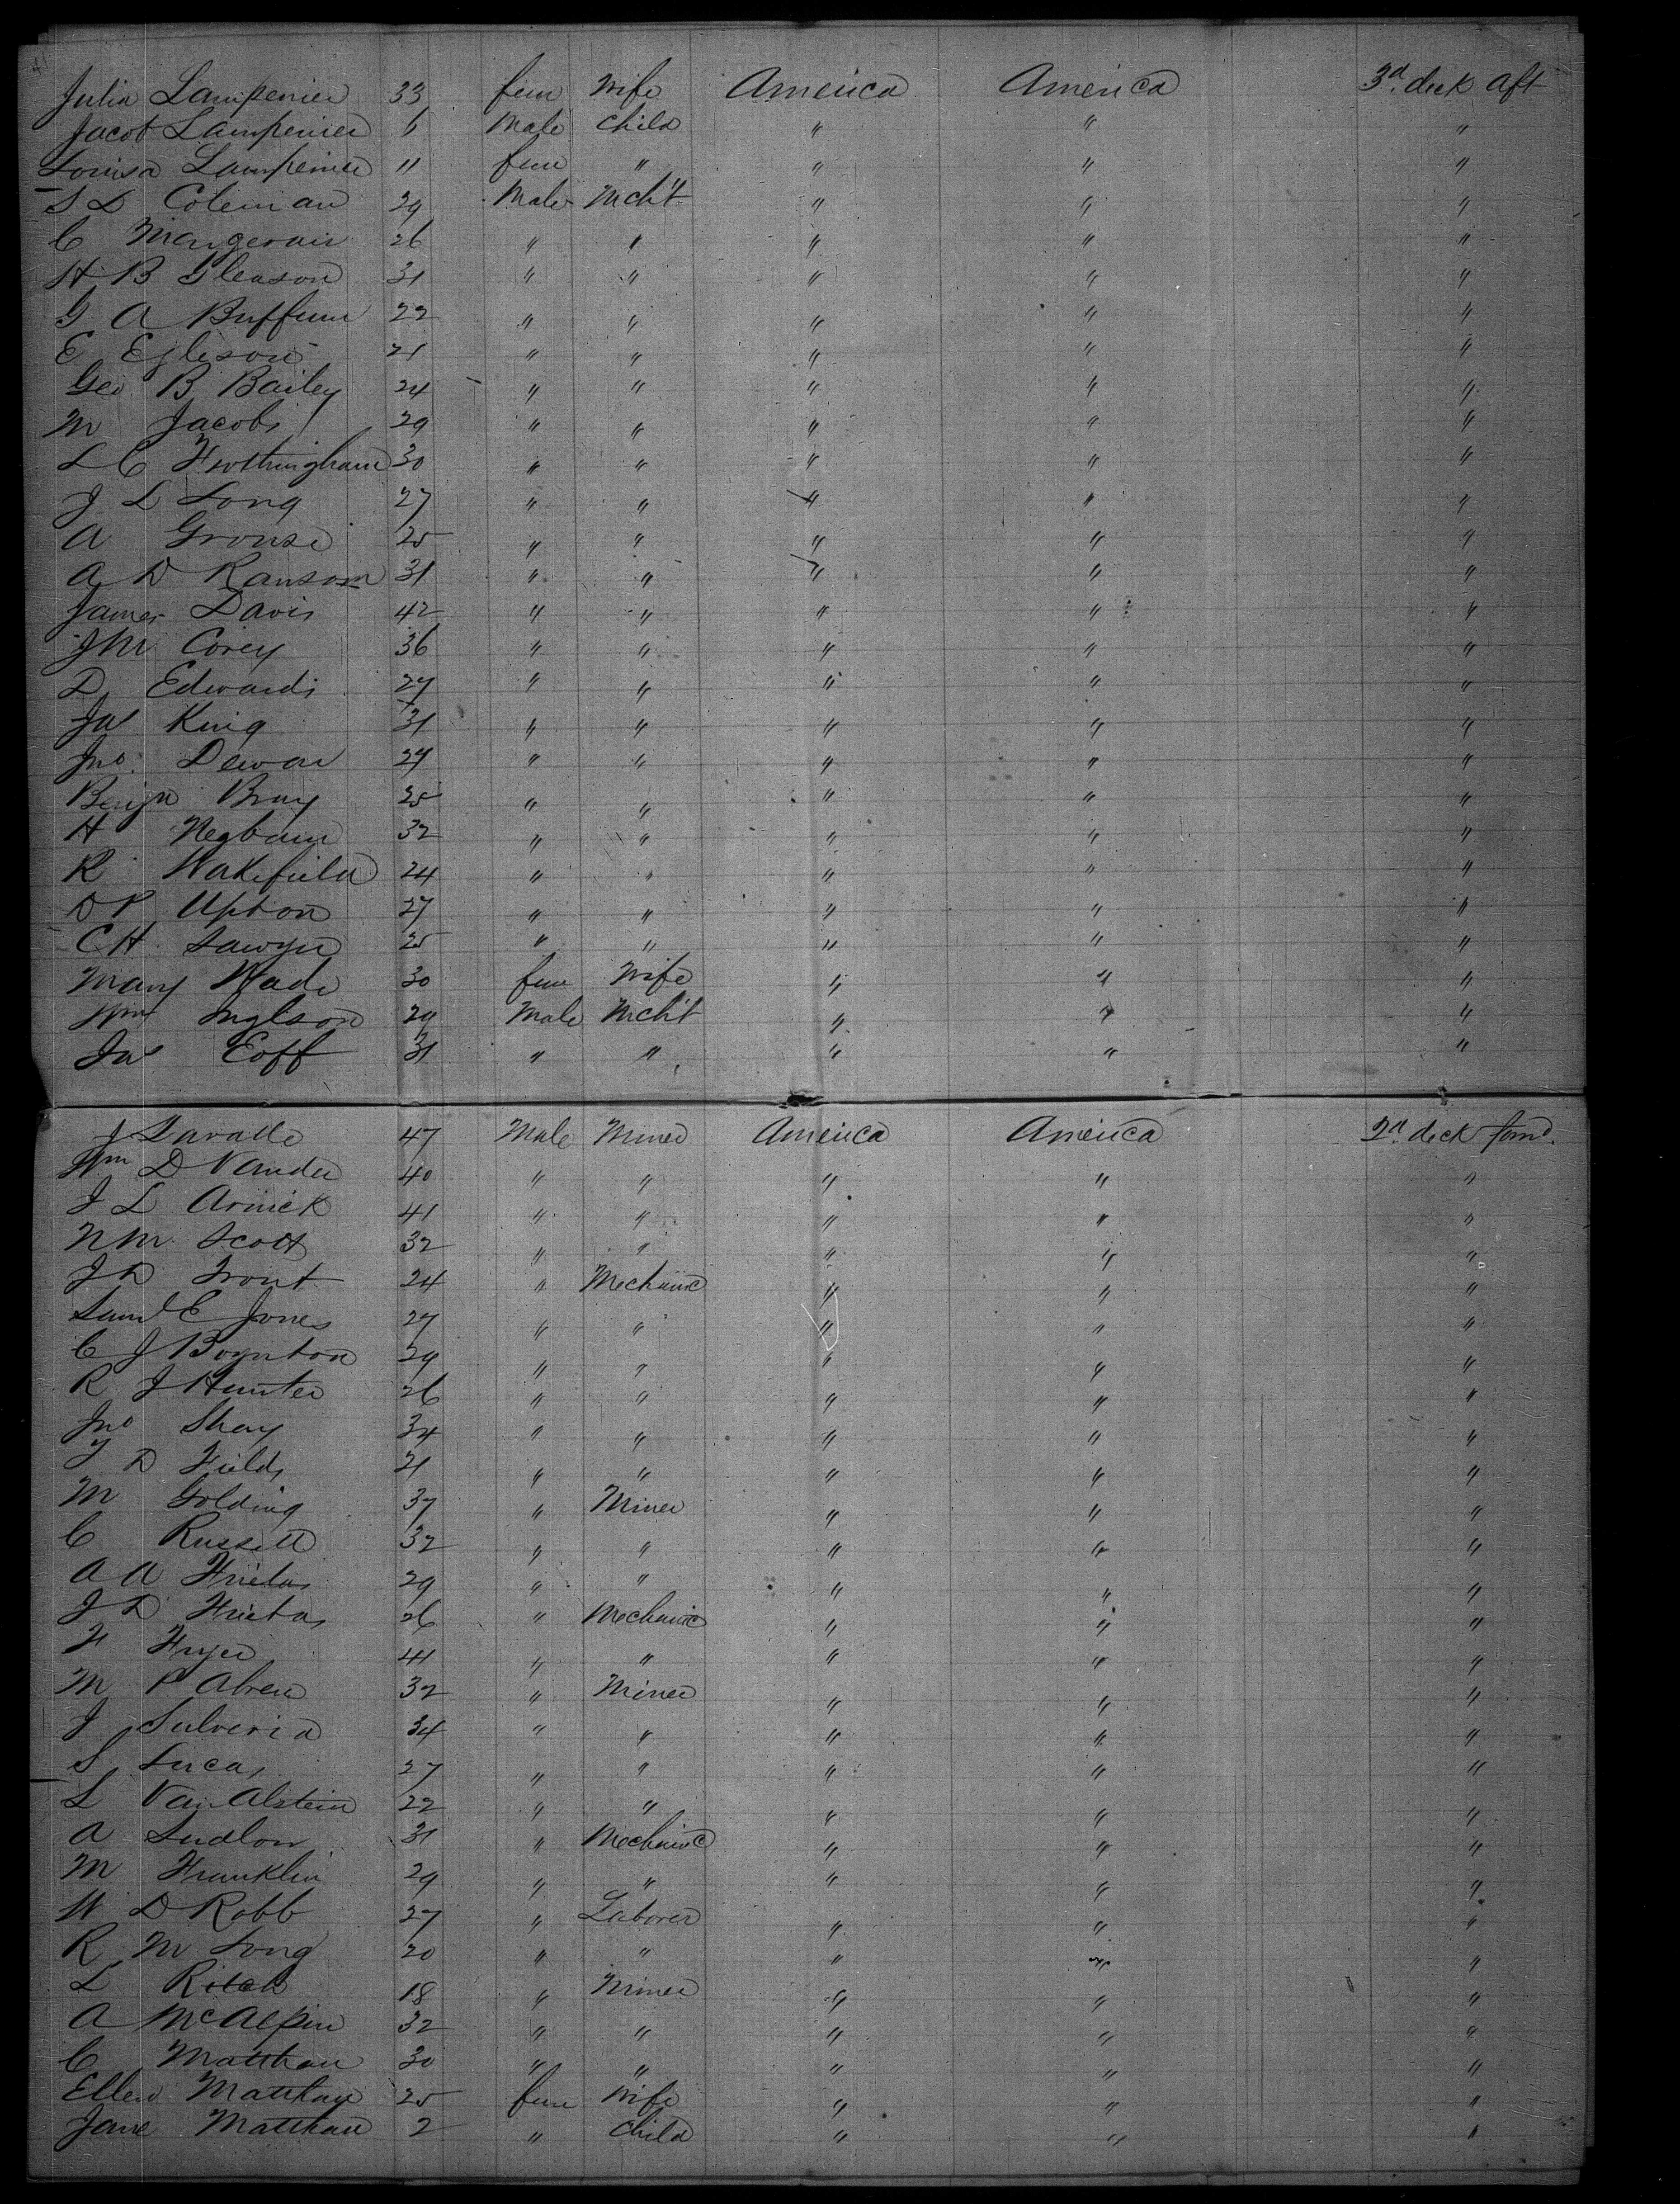 Julia Lampenier 33 fem Wife America America 3d. deck aft
Jacob Lampenier 6 Male Child " " "
Louisa Lampenier 11 fem " " " "
S D Coleman 29 Male Mcht " " "
C 26 " " " " "
H B Gleason 31 " " " " "
G A Buffum 22 " " " " "
E Egleson 21 " " " " "
Geo B Bailey 24 " " " " "
M Jacobs 29 " " " " "
L C Frothingham 30 " " " " "
J L Long 27 " " " " "
A Grouse 25 " " " " "
A D Ransom 31 " " " " "
James Davis 42 " " " " "
J M Corey 36 " " " " "
D Edwards 27 " " " " "
Jas King 31 " " " " "
Jno. Dewar 29 " " " " "
Benjn Bray 25 " " " " "
H Negbaum 32 " " " " "
R Wakefield 24 " " " " "
D P Upton 27 " " " " "
C H Sawyer 25 " " " " "
Mary Wade 30 fem Wife " " "
Wm Inglson 29 Male Mcht " " "
Jas Eoff 31 " " " " "
J Lavalle 47 Male Miner America America 2d. deck forwd.
Wm D Vander 40 " " " " "
J L Arnick 41 " " " " "
N M Scott 32 " " " " "
J D Trout 24 " Mechanic " " "
Saml E Jones 27 " " " " "
C J Boynton 29 " " " " "
R J Hunter 26 " " " " "
Jno Shay 34 " " " " "
J D Fields 21 " " " " "
M Golding 37 " Miner " " "
C Russell 32 " " " " "
A A Frietas 29 " " " " "
J D Frietas 26 " Mechanic " " "
F Fryer 41 " " " " "
M P Abreu 32 " Miner " " "
J Sulveria 34 " " " " "
S Lucas 27 " " " " "
L Van Alstein 22 " " " " "
A Ludlow 31 " Mechanic " " "
M Franklin 29 " " " " "
W D Robb 27 " Laborer " " "
R M Long 20 " " " " "
L Ritch 18 " Miner " " "
A McAlpin 32 " " " " "
C Matthau 30 " " " " "
Ellen Matthau 25 fem Wife " " "
Jane Matthau 2 " Child " " "